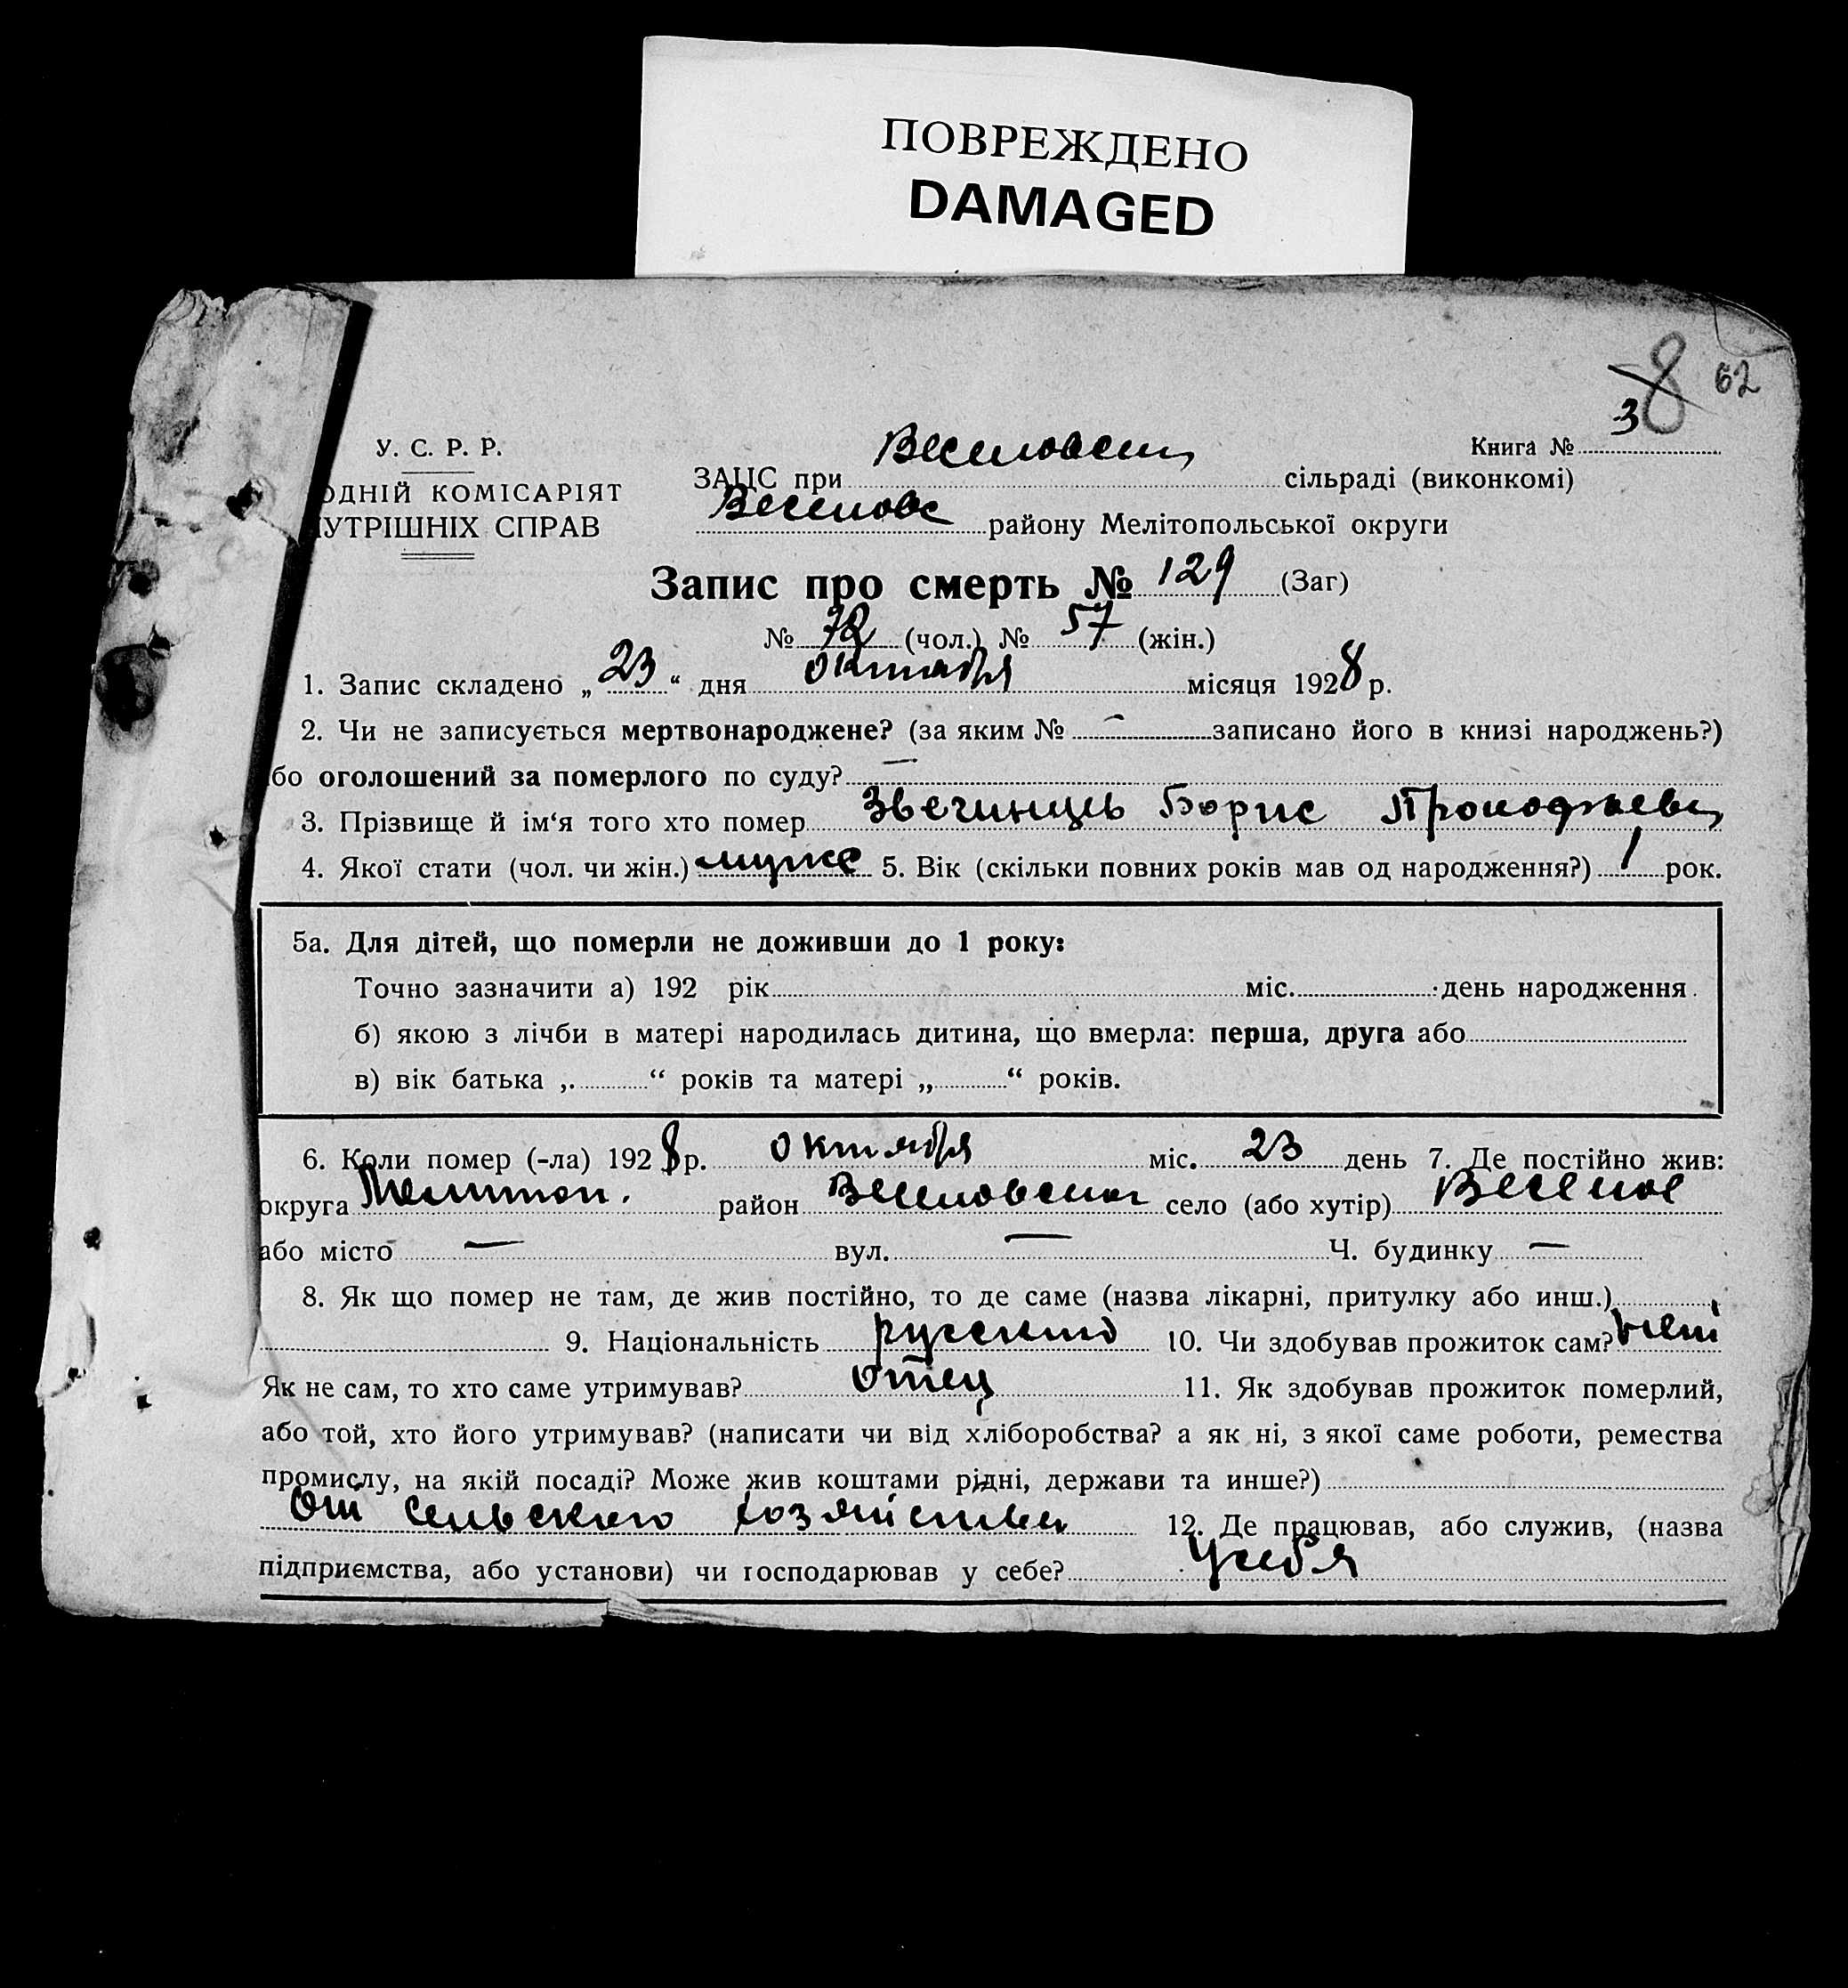 ПОВРЕЖДЕНО
DAMAGED
8 62
3
У. С. Р. Р.
Книга №
ЗАЦС при Веселовськ сільраді (виконкомі)
ОДНІЙ КОМІСАРІЯТ
НУТРІШНІХ СПРАВ
Веселовс району Мелітопольської округи
Запис про смерть № 129 (Заг)
№ 72 (чол.) № 57 (жін.)
1. Запис складено „23“ дня октября місяця 1928 р.
2. Чи не записується мертвонароджене? (за яким № — записано його в книзі народжень?)
бо оголошений за померлого по суду? —
3. Прізвище й ім‘я того хто помер Звегинцев Борис Прокофьев
4. Якої стати (чол. чи жін.) мужс 5. Вік (скільки повних років мав од народження?) 1 рок.
5а. Для дітей, що померли не доживши до 1 року:
Точно зазначити а) 192 рік міс. день народження
б) якою з лічби в матері народилась дитина, що вмерла: перша, друга або
в) вік батька „ “ років та матері „ “ років.
6. Коли помер (-ла) 1928 р. октября міс. 23 день 7. Де постійно жив:
округа Мелитоп. район Веселовский село (або хутір) Веселое
або місто — вул. — Ч. будинку —
8. Як що помер не там, де жив постійно, то де саме (назва лікарні, притулку або инш.)
9. Національність русский 10. Чи здобував прожиток сам? нет
Як не сам, то хто саме утримував? отец 11. Як здобував прожиток померлий,
або той, хто його утримував? (написати чи від хліборобства? а як ні, з якої саме роботи, ремества
промислу, на якій посаді? Може жив коштами рідні, держави та инше?)
От сельского хозяйства 12. Де працював, або служив, (назва
підприємства, або установи) чи господарював у себе? У себя